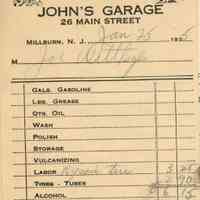 JOHN'S GARAGE
26 MAIN STREET
MILLBURN, N. J. Jan 25 1925
M
GALS. GASOLINE
LBS. GREASE
QTS. OIL
WASH
POLISH
STORAGE
VULCANIZING
LABOR Repair tire
TIRES - TUBES
ALCOHOL